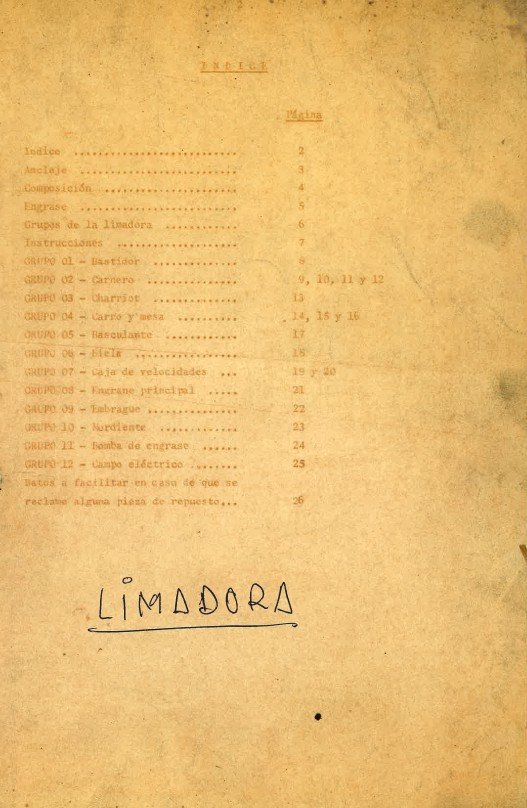 INDICE
Página
Indice .......................... 2
Anclaje ......................... 3
Composición ..................... 4
Engrase ......................... 5
Grupos de la limadora ............ 6
Instrucciones ................... 7
GRUPO 01 - Bastidor .............. 8
GRUPO 02 - Carnero ............... 9, 10, 11 y 12
GRUPO 03 - Charriot .............. 13
GRUPO 04 - Carro y mesa .......... 14, 15 y 16
GRUPO 05 - Basculante ............ 17
GRUPO 06 - Biela ................. 18
GRUPO 07 - Caja de velocidades ... 19 y 20
GRUPO 08 - Engrane principal ..... 21
GRUPO 09 - Embrague .............. 22
GRUPO 10 - Mordiente ............. 23
GRUPO 11 - Bomba de engrase ...... 24
GRUPO 12 - Campo eléctrico ....... 25
Datos a facilitar en caso de que se
reclame alguna pieza de repuesto... 26
LIMADORA